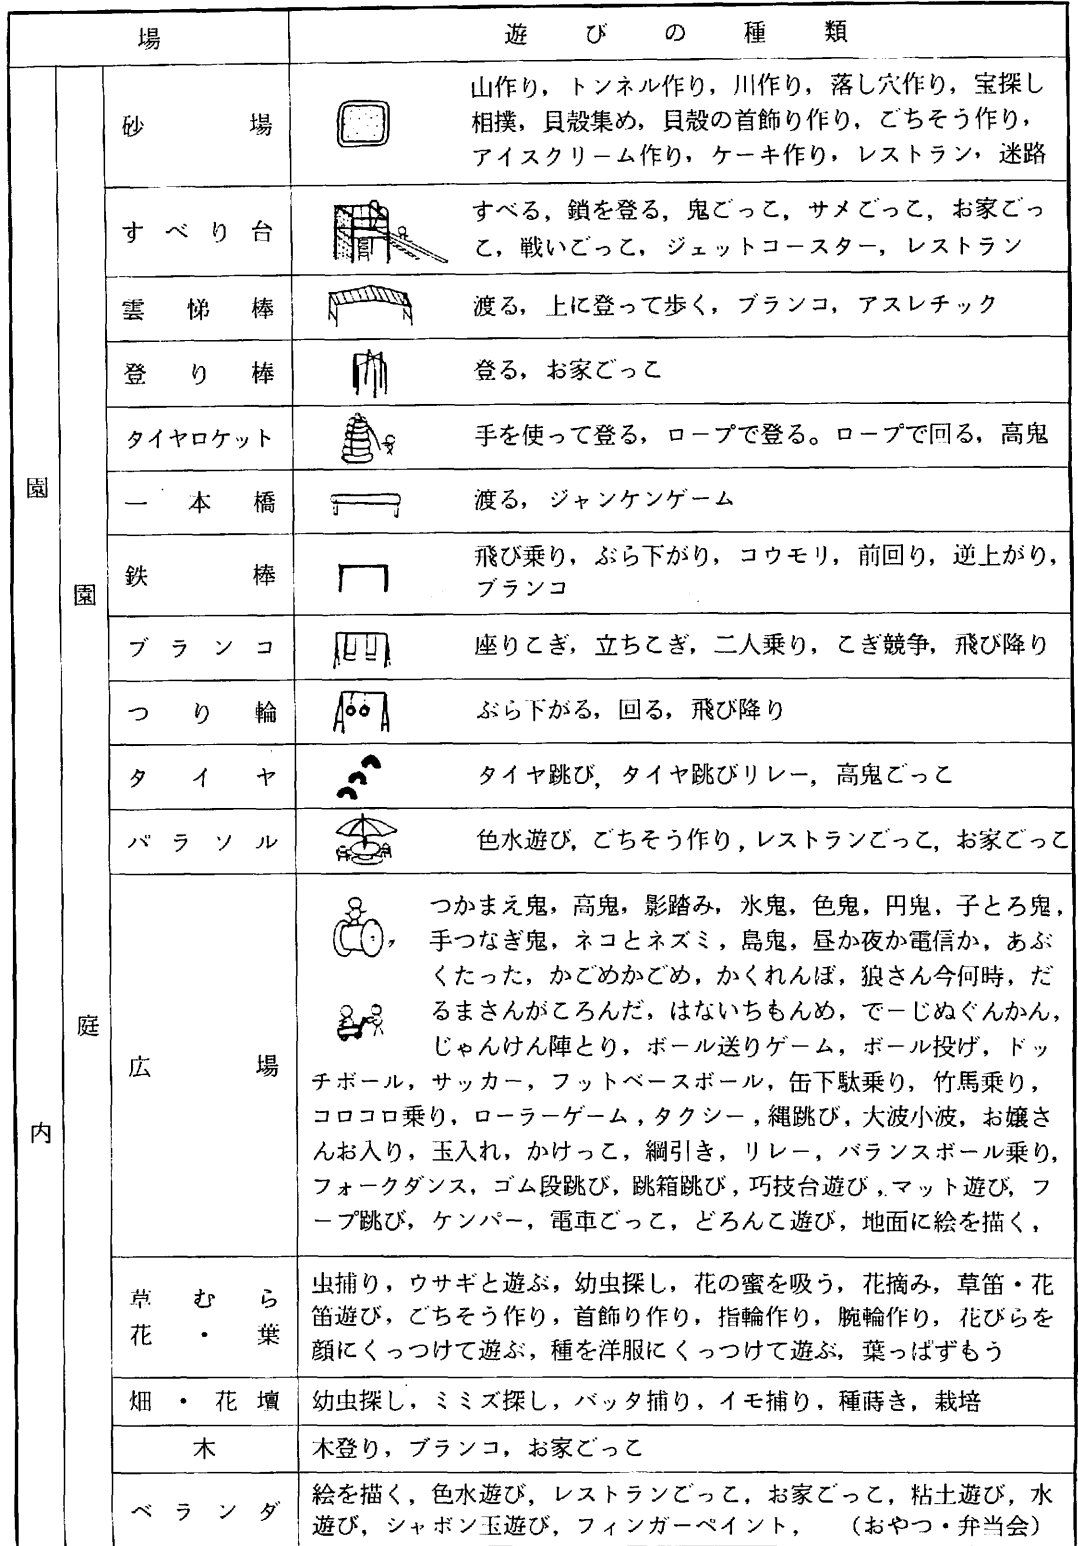 場 遊びの種類
園内
園庭
砂場
山作り，トンネル作り，川作り，落し穴作り，宝探し
相撲，貝殻集め，貝殻の首飾り作り，ごちそう作り，
アイスクリーム作り，ケーキ作り，レストラン，迷路
すべり台
すべる，鎖を登る，鬼ごっこ，サメごっこ，お家ごっ
こ，戦いごっこ，ジェットコースター，レストラン
雲悌棒
渡る，上に登って歩く，ブランコ，アスレチック
登り棒
登る，お家ごっこ
タイヤロケット
手を使って登る，ロープで登る。ロープで回る，高鬼
一本橋
渡る，ジャンケンゲーム
鉄棒
飛び乗り，ぶら下がり，コウモリ，前回り，逆上がり，
ブランコ
ブランコ
座りこぎ，立ちこぎ，二人乗り，こぎ競争，飛び降り
つり輪
ぶら下がる，回る，飛び降り
タイヤ
タイヤ跳び，タイヤ跳びリレー，高鬼ごっこ
パラソル
色水遊び，ごちそう作り，レストランごっこ，お家ごっこ
広場
つかまえ鬼，高鬼，影踏み，氷鬼，色鬼，円鬼，子とろ鬼，
手つなぎ鬼，ネコとネズミ，島鬼，昼か夜か電信か，あぶ
くたった，かごめかごめ，かくれんぼ，狼さん今何時，だ
るまさんがころんだ，はないちもんめ，でーじぬぐんかん，
じゃんけん陣とり，ボール送りゲーム，ボール投げ，ドッ
チボール，サッカー，フットベースボール，缶下駄乗り，竹馬乗り，
コロコロ乗り，ローラーゲーム，タクシー，縄跳び，大波小波，お嬢さ
んお入り，玉入れ，かけっこ，綱引き，リレー，バランスボール乗り，
フォークダンス，ゴム段跳び，跳箱跳び，巧技台遊び，マット遊び，フ
ープ跳び，ケンパー，電車ごっこ，どろんこ遊び，地面に絵を描く，
草むら
花・葉
虫捕り，ウサギと遊ぶ，幼虫探し，花の蜜を吸う，花摘み，草笛・花
笛遊び，ごちそう作り，首飾り作り，指輪作り，腕輪作り，花びらを
顔にくっつけて遊ぶ，種を洋服にくっつけて遊ぶ，葉っぱずもう
畑・花壇
幼虫探し，ミミズ探し，バッタ捕り，イモ捕り，種蒔き，栽培
木
木登り，ブランコ，お家ごっこ
ベランダ
絵を描く，色水遊び，レストランごっこ，お家ごっこ，粘土遊び，水
遊び，シャボン玉遊び，フィンガーペイント，（おやつ・弁当会）